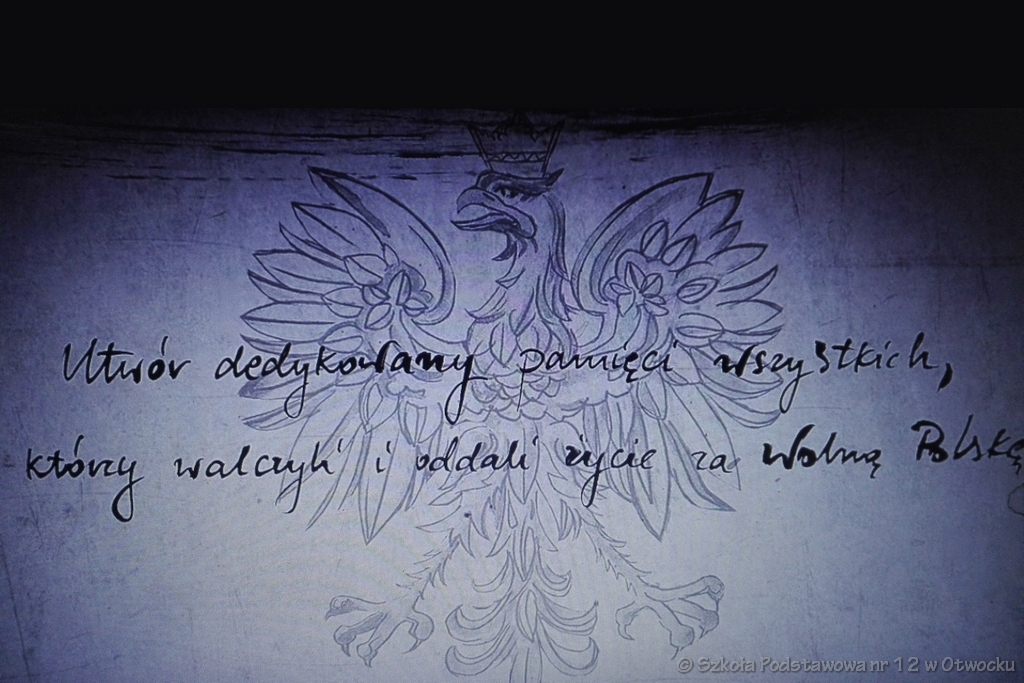 Utwór dedykowany pamięci wszystkich,
którzy walczyli i oddali życie za Wolną Polskę
© Szkoła Podstawowa nr 12 w Otwocku